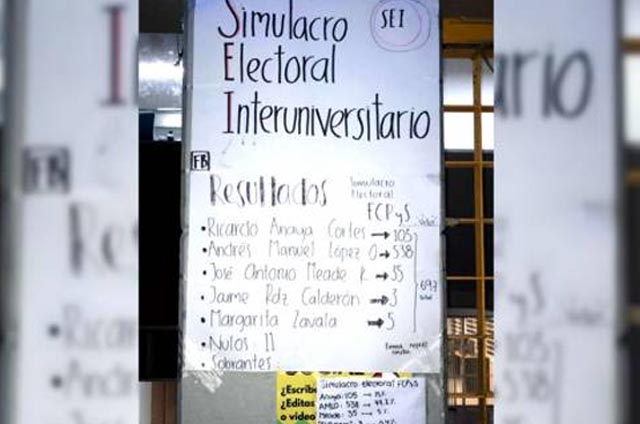 Simulacro
Electoral
Interuniversitario
SEI
FB
Resultados
Simulacro
Electoral
FCPyS
• Ricardo Anaya Cortes → 105
• Andrés Manuel López O → 538
• José Antonio Meade K. → 35
• Jaime Rdz Calderón → 3
• Margarita Zavala → 5
697
total
• Nulos: 11
• Sobrantes:
¿Escribe
¿Editas
o video
Simulacro electoral FCPyS
Anaya: 105 → 15%
AMLO: 538 → 77.2%
Meade: 35 → 5%